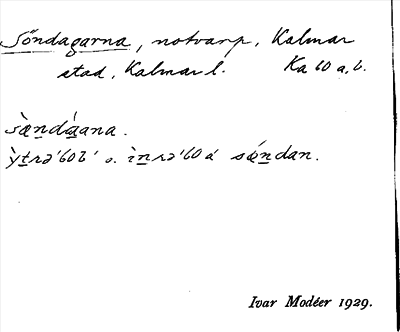 Söndagarna, notvarp, Kalmar
stad, Kalmar l. Ka 60 a, b.
sæ̀ndá̱ana.
ỳt̠rə'60 o. ìn̠rə'60 á sǽn̠dan.
Ivar Modéer 1929.